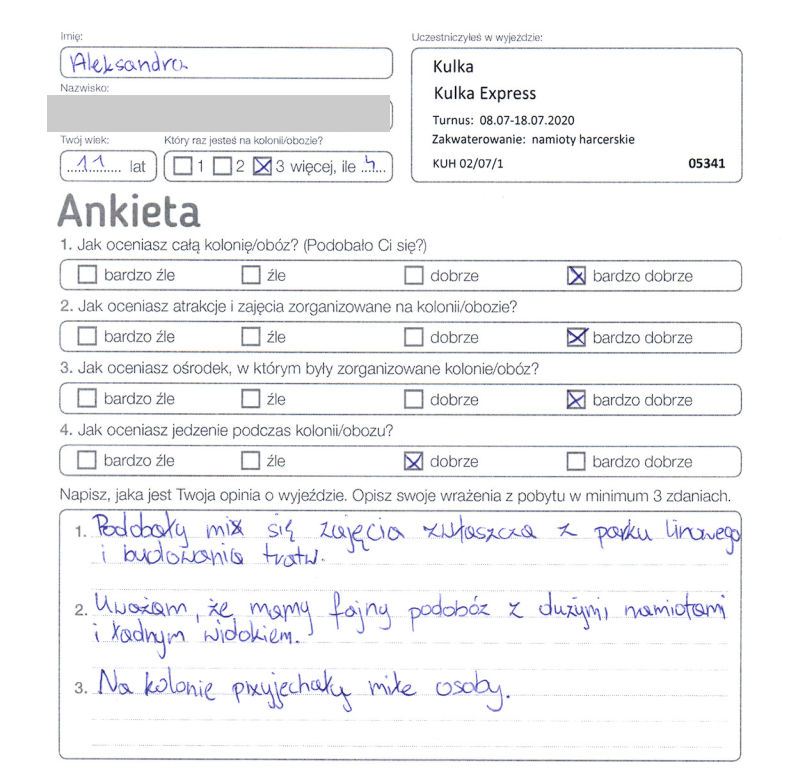 Imię:
Aleksandra
Nazwisko:
Twój wiek:
11 lat
Który raz jesteś na kolonii/obozie?
1 2 3 więcej, ile 4
Uczestniczyłeś w wyjeździe:
Kulka
Kulka Express
Turnus: 08.07-18.07.2020
Zakwaterowanie: namioty harcerskie
KUH 02/07/1 05341
Ankieta
1. Jak oceniasz całą kolonię/obóz? (Podobało Ci się?)
bardzo źle źle dobrze bardzo dobrze
2. Jak oceniasz atrakcje i zajęcia zorganizowane na kolonii/obozie?
bardzo źle źle dobrze bardzo dobrze
3. Jak oceniasz ośrodek, w którym były zorganizowane kolonie/obóz?
bardzo źle źle dobrze bardzo dobrze
4. Jak oceniasz jedzenie podczas kolonii/obozu?
bardzo źle źle dobrze bardzo dobrze
Napisz, jaka jest Twoja opinia o wyjeździe. Opisz swoje wrażenia z pobytu w minimum 3 zdaniach.
1. Podobały mi się zajęcia zwłaszcza z parku linowego
i budowania tratw.
2. Uważam, że mamy fajny podobóz z dużymi namiotami
i ładnym widokiem.
3. Na kolonie przyjechały miłe osoby.